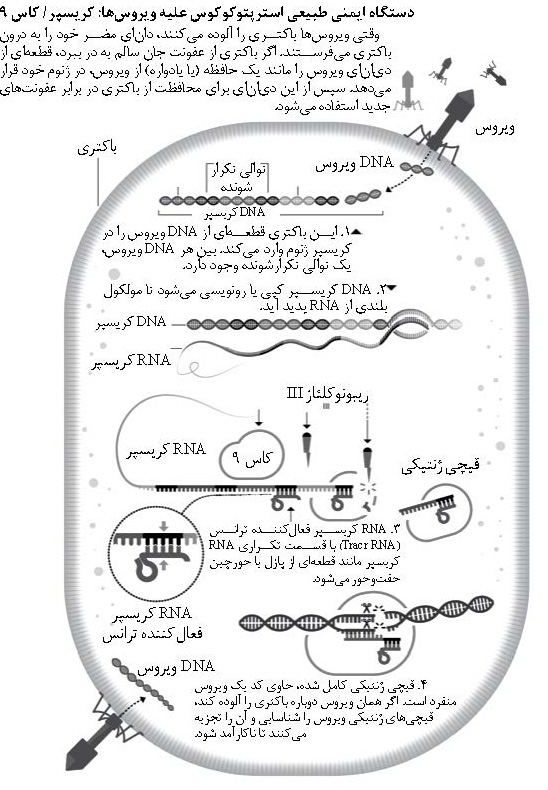 دستگاه ایمنی طبیعی استرپتوکوکوس علیه ویروس‌ها: کریسپر / کاس ۹
وقتی ویروس‌ها باکتری را آلوده می‌کنند، دی‌ان‌ای مضر خود را به درون
باکتری می‌فرستند. اگر باکتری از عفونت جان سالم به در ببرد، قطعه‌ای از
دی‌ان‌ای ویروس را مانند یک حافظه (یا یادواره) از ویروس، در ژنوم خود قرار
می‌دهد. سپس از این دی‌ان‌ای برای محافظت از باکتری در برابر عفونت‌های
جدید استفاده می‌شود.
ویروس
باکتری
DNA ویروس
توالی تکرار
شونده
DNA کریسپر
۱. این باکتری قطعه‌ای از DNA ویروس را در
کریسپر ژنوم وارد می‌کند. بین هر DNA ویروس،
یک توالی تکرارشونده وجود دارد.
۲. DNA کریسپر کپی یا رونویسی می‌شود تا مولکول
بلندی از RNA پدید آید.
DNA کریسپر
RNA کریسپر
ریبونوکلئاز III
RNA کریسپر
کاس ۹
قیچی ژنتیکی
۳. RNA کریسپر فعال‌کننده ترانس
(Tracr RNA) با قسمت تکراری RNA
کریسپر مانند قطعه‌ای از پازل یا جورچین
جفت‌وجور می‌شود.
RNA کریسپر
فعال کننده ترانس
DNA ویروس
۴. قیچی ژنتیکی کامل شده، حاوی کد یک ویروس
منفرد است. اگر همان ویروس دوباره باکتری را آلوده کند،
قیچی‌های ژنتیکی ویروس را شناسایی و آن را تجزیه
می‌کنند تا ناکارآمد شود.